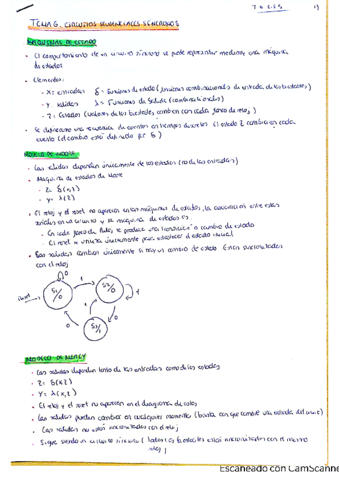 TEMA 6. CIRCUITOS SECUENCIALES SÍNCRONOS
MÁQUINAS DE ESTADO
• El comportamiento de un circuito síncrono se puede representar mediante una máquina
de estados
• Elementos:
- X = entradas δ = Funciones de estado (funciones combinacionales de entrada de los biestables)
- Y = salidas λ = Funciones de Salida (combinacionales)
- Z = Estados (valores de los biestables, cambian con cada flanco de reloj)
• Se define como una secuencia de eventos en tiempos discretos. El estado Z cambia en cada
evento (el cambio está definido por δ)
MODELO DE MOORE
• Las salidas dependen únicamente de los estados (no de las entradas)
• Máquina de estados de Moore
- Z = δ(x,z)
- y = λ(z)
• El reloj y el reset no aparecen en las máquinas de estados, la
- En cada flanco de reloj se produce una transición o cambio de estado
- El reset se utiliza únicamente para establecer el estado inicial
• Las salidas cambian únicamente si hay un cambio de estado. Están sincronizadas
con el reloj
reset
S1/0
S2/0
S3/1
0
1
1
0
MODELO DE MEALY
• Las salidas dependen tanto de las entradas como de los estados
• Z = δ(x,z)
• Y = λ(x,z)
• El reloj y el reset no aparecen en el diagrama de
• Las salidas pueden cambiar en cualquier momento (basta con que cambie una entrada del circuito)
• Las salidas no están sincronizadas con el reloj
• Sigue siendo un circuito síncrono (todos los biestables están sincronizados con el mismo
reloj)
Escaneado con CamScanne